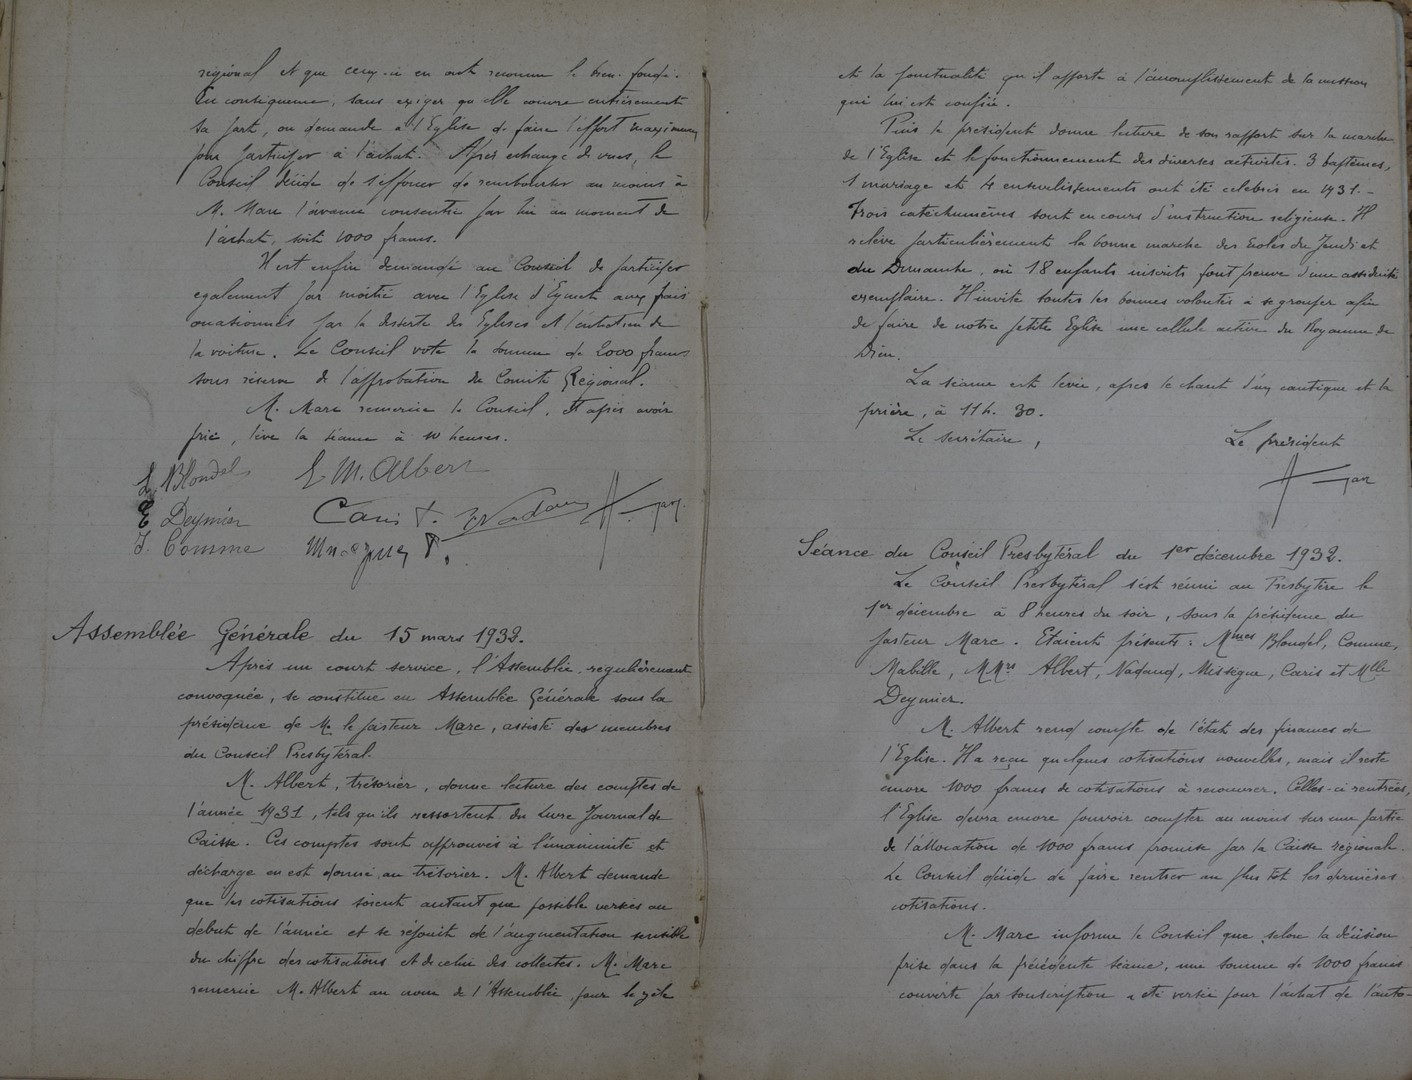 régional et que ceux-ci en ont reconnu le bien-fondé.
En conséquence, sans exiger qu'elle couvre entièrement
sa part, on demande à l'Eglise de faire l'effort maximum
pour participer à l'achat. Après échange de vues, le
Conseil décide de s'efforcer de rembourser au moins à
M. Marc l'avance consentie par lui au moment de
l'achat, soit 1000 francs.
Il est enfin demandé au Conseil de participer
également par moitié avec l'Eglise d'Eymet aux frais
occasionnés par la desserte des Eglises et l'entretien de
la voiture. Le Conseil vote la somme de 2000 francs
sous réserve de l'approbation du Comité Régional.
M. Marc remercie le Conseil, et après avoir
prié, lève la séance à 10 heures.
L. Blondel E. M. Albert
E Deynier Caris F. Nadaud Marc
J. Comme
Assemblée Générale du 15 mars 1932.
Après un court service, l'Assemblée régulièrement
convoquée, se constitue en Assemblée Générale sous la
présidence de M. le pasteur Marc, assisté des membres
du Conseil Presbytéral.
M. Albert, trésorier, donne lecture des comptes de
l'année 1931, tels qu'ils ressortent du Livre Journal de
Caisse. Ces comptes sont approuvés à l'unanimité et
décharge en est donné au trésorier. M. Albert demande
que les cotisations soient autant que possible versées au
début de l'année et se réjouit de l'augmentation sensible
du chiffre des cotisations et de celui des collectes. M. Marc
remercie M. Albert au nom de l'Assemblée pour le zèle
et la ponctualité qu'il apporte à l'accomplissement de la mission
qui lui est confiée.
Puis le président donne lecture de son rapport sur la marche
de l'Eglise et le fonctionnement des diverses activités. 3 baptêmes,
1 mariage et 4 ensevelissements ont été célébrés en 1931.-
Trois catéchumènes sont en cours d'instruction religieuse. Il
relève particulièrement la bonne marche des Ecoles du Jeudi et
du Dimanche, où 18 enfants inscrits font preuve d'une assiduité
exemplaire. Il invite toutes les bonnes volontés à se grouper afin
de faire de notre petite Eglise une cellule active du Royaume de
Dieu.
La séance est levée, après le chant d'un cantique et la
prière, à 11 h. 30.
Le secrétaire, Le président
Marc
Séance du Conseil Presbytéral du 1er décembre 1932.
Le Conseil Presbytéral s'est réuni au Presbytère le
1er décembre à 8 heures du soir, sous la présidence du
pasteur Marc. Etaient présents: Mmes Blondel, Comme,
Mabille, MMrs Albert, Nadaud, Missègue, Caris et Mlle
Deynier.
M. Albert rend compte de l'état des finances de
l'Eglise. Il a reçu quelques cotisations nouvelles, mais il reste
encore 1000 francs de cotisations à recouvrer. Celles-ci rentrées,
l'Eglise devra encore pouvoir compter au moins sur une partie
de l'allocation de 1000 francs promise par la Caisse régionale.
Le Conseil décide de faire rentrer au plus tôt les dernières
cotisations.
M. Marc informe le Conseil que selon la décision
prise dans la précédente séance, une somme de 1000 francs
couverte par souscription a été versée pour l'achat de l'auto-